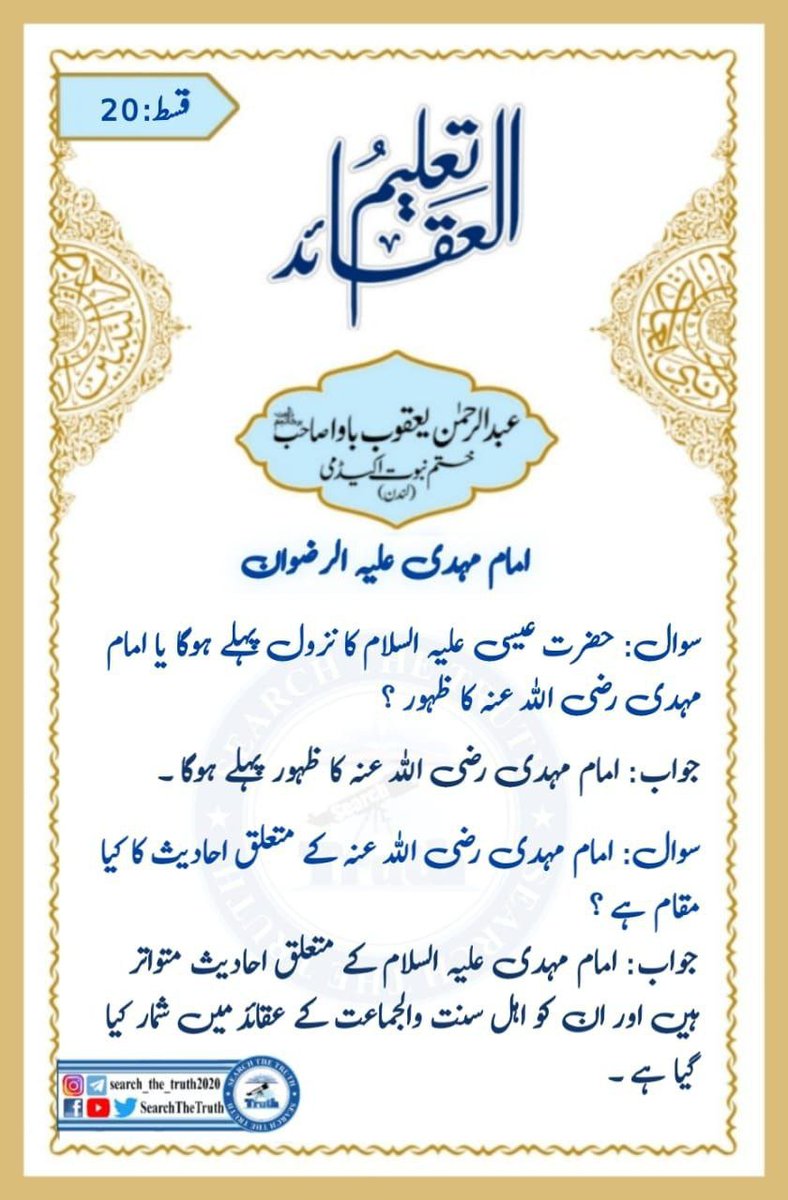 قسط:20
تعلیمُ
العقائد
عبدالرحمٰن یعقوب باوا صاحب
ختم نبوت اکیڈمی
(لندن)
امام مہدی علیہ الرضوان
سوال: حضرت عیسی علیہ السلام کا نزول پہلے ہوگا یا امام
مہدی رضی اللہ عنہ کا ظہور ؟
جواب: امام مہدی رضی اللہ عنہ کا ظہور پہلے ہوگا ۔
سوال: امام مہدی رضی اللہ عنہ کے متعلق احادیث کا کیا
مقام ہے ؟
جواب: امام مہدی علیہ السلام کے متعلق احادیث متواتر
ہیں اور ان کو اهل سنت والجماعت کے عقائد میں شمار کیا
گیا ہے ۔
search_the_truth2020
SearchTheTruth
SEARCH THE TRUTH
Truth